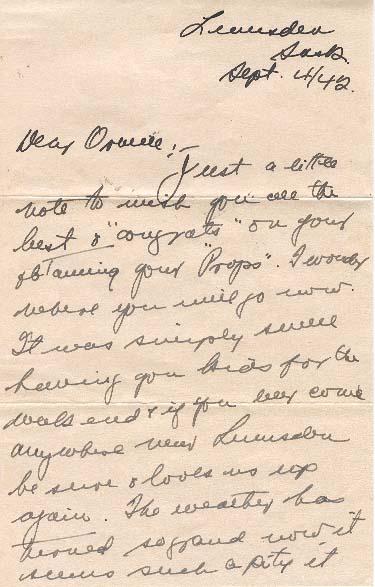 Lumsden
Sask.
Sept. 4/42.
Dear Orville:-
Just a little
note to wish you all the
best & "congrats" on your
obtaining your "Props". I wonder
where you will go now.
It was simply swell
having you kids for the
weekend & if you ever come
anywhere near Lumsden
be sure & looks us up
again. The weather has
turned so grand now it
seems such a pity it